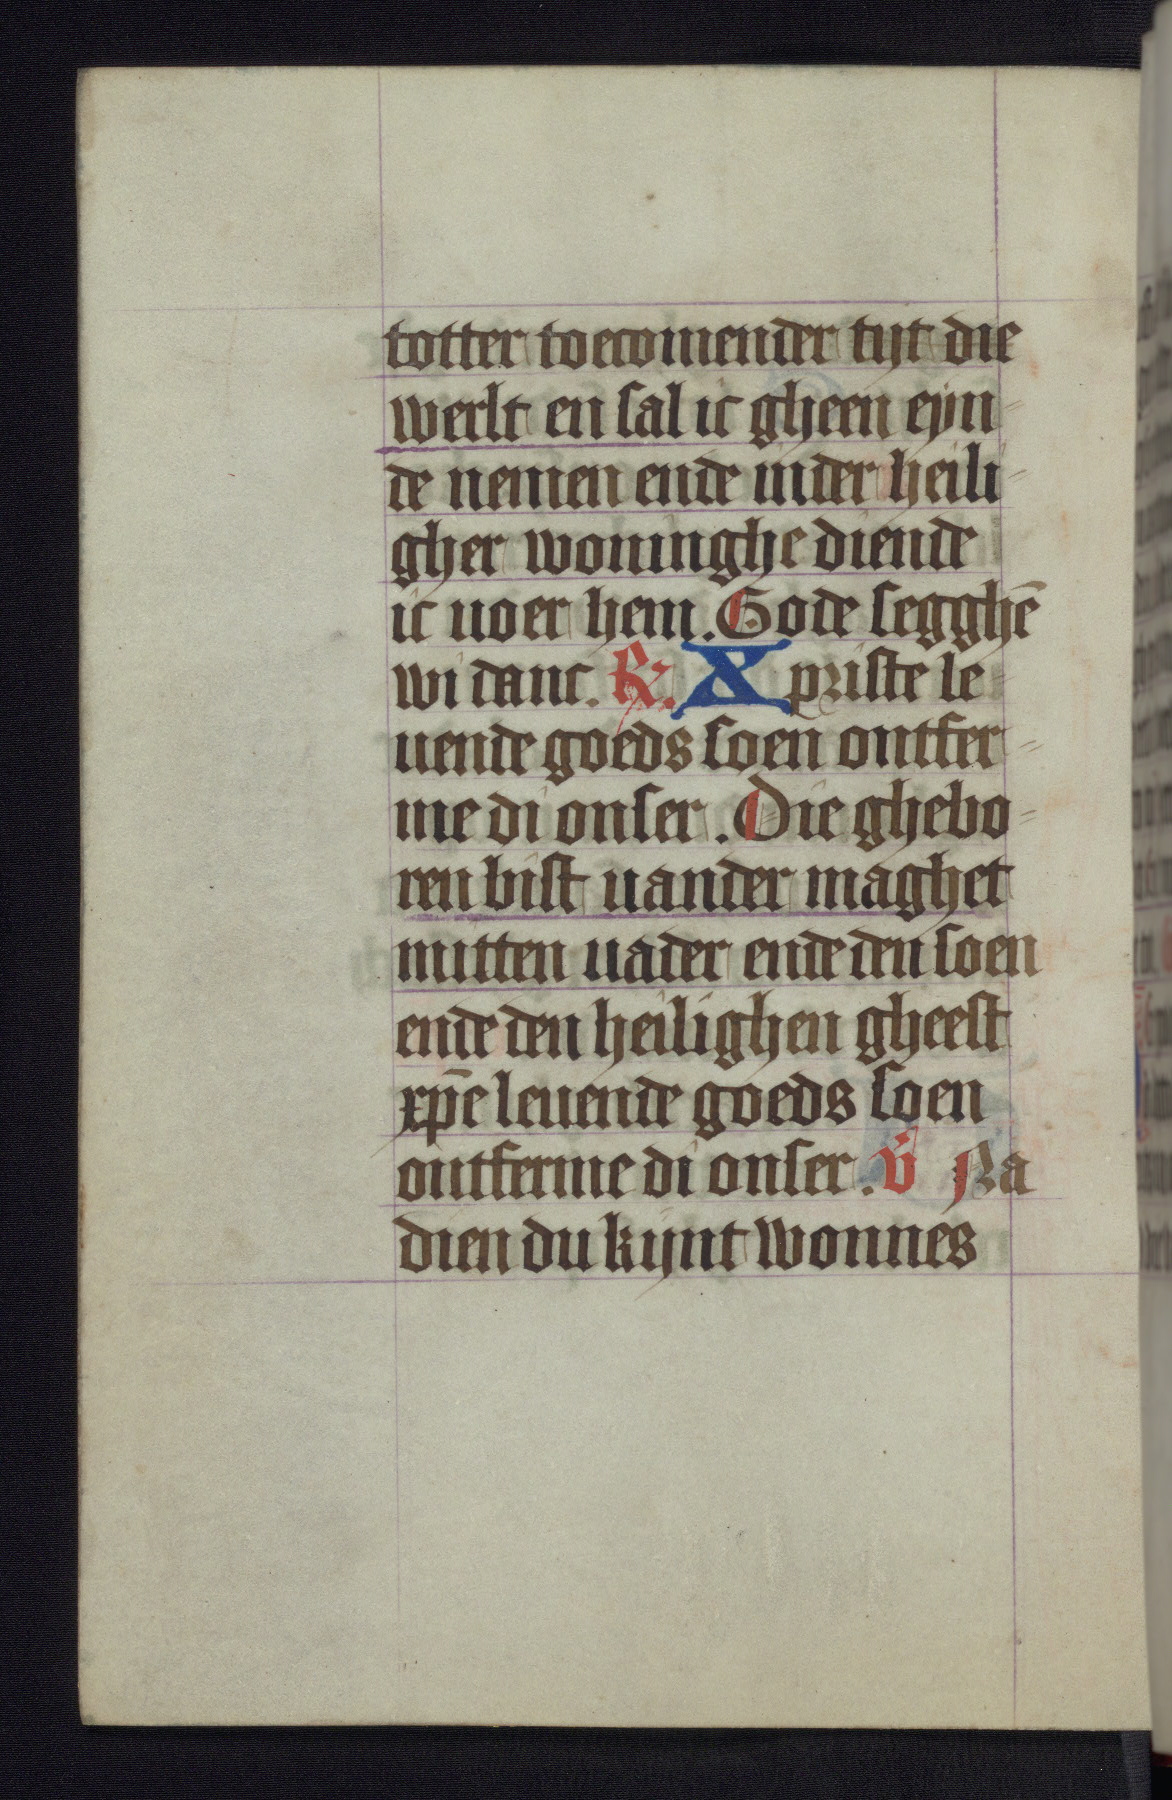 totter toecomender tijt die
werlt en sal ic gheen eyn
de nemen ende inder heili
gher woninghe diende
ic uoer hem. Gode segghē
wi danc. R. Xpriste le
uende goeds soen ontfer
me di onser. Die ghebo
ren bist uander maghet
mitten uader ende den soen
ende den heilighen gheest
xp̄e leuende goeds soen
ontferme di onser. v̄ Na
dien du kijnt wonnes